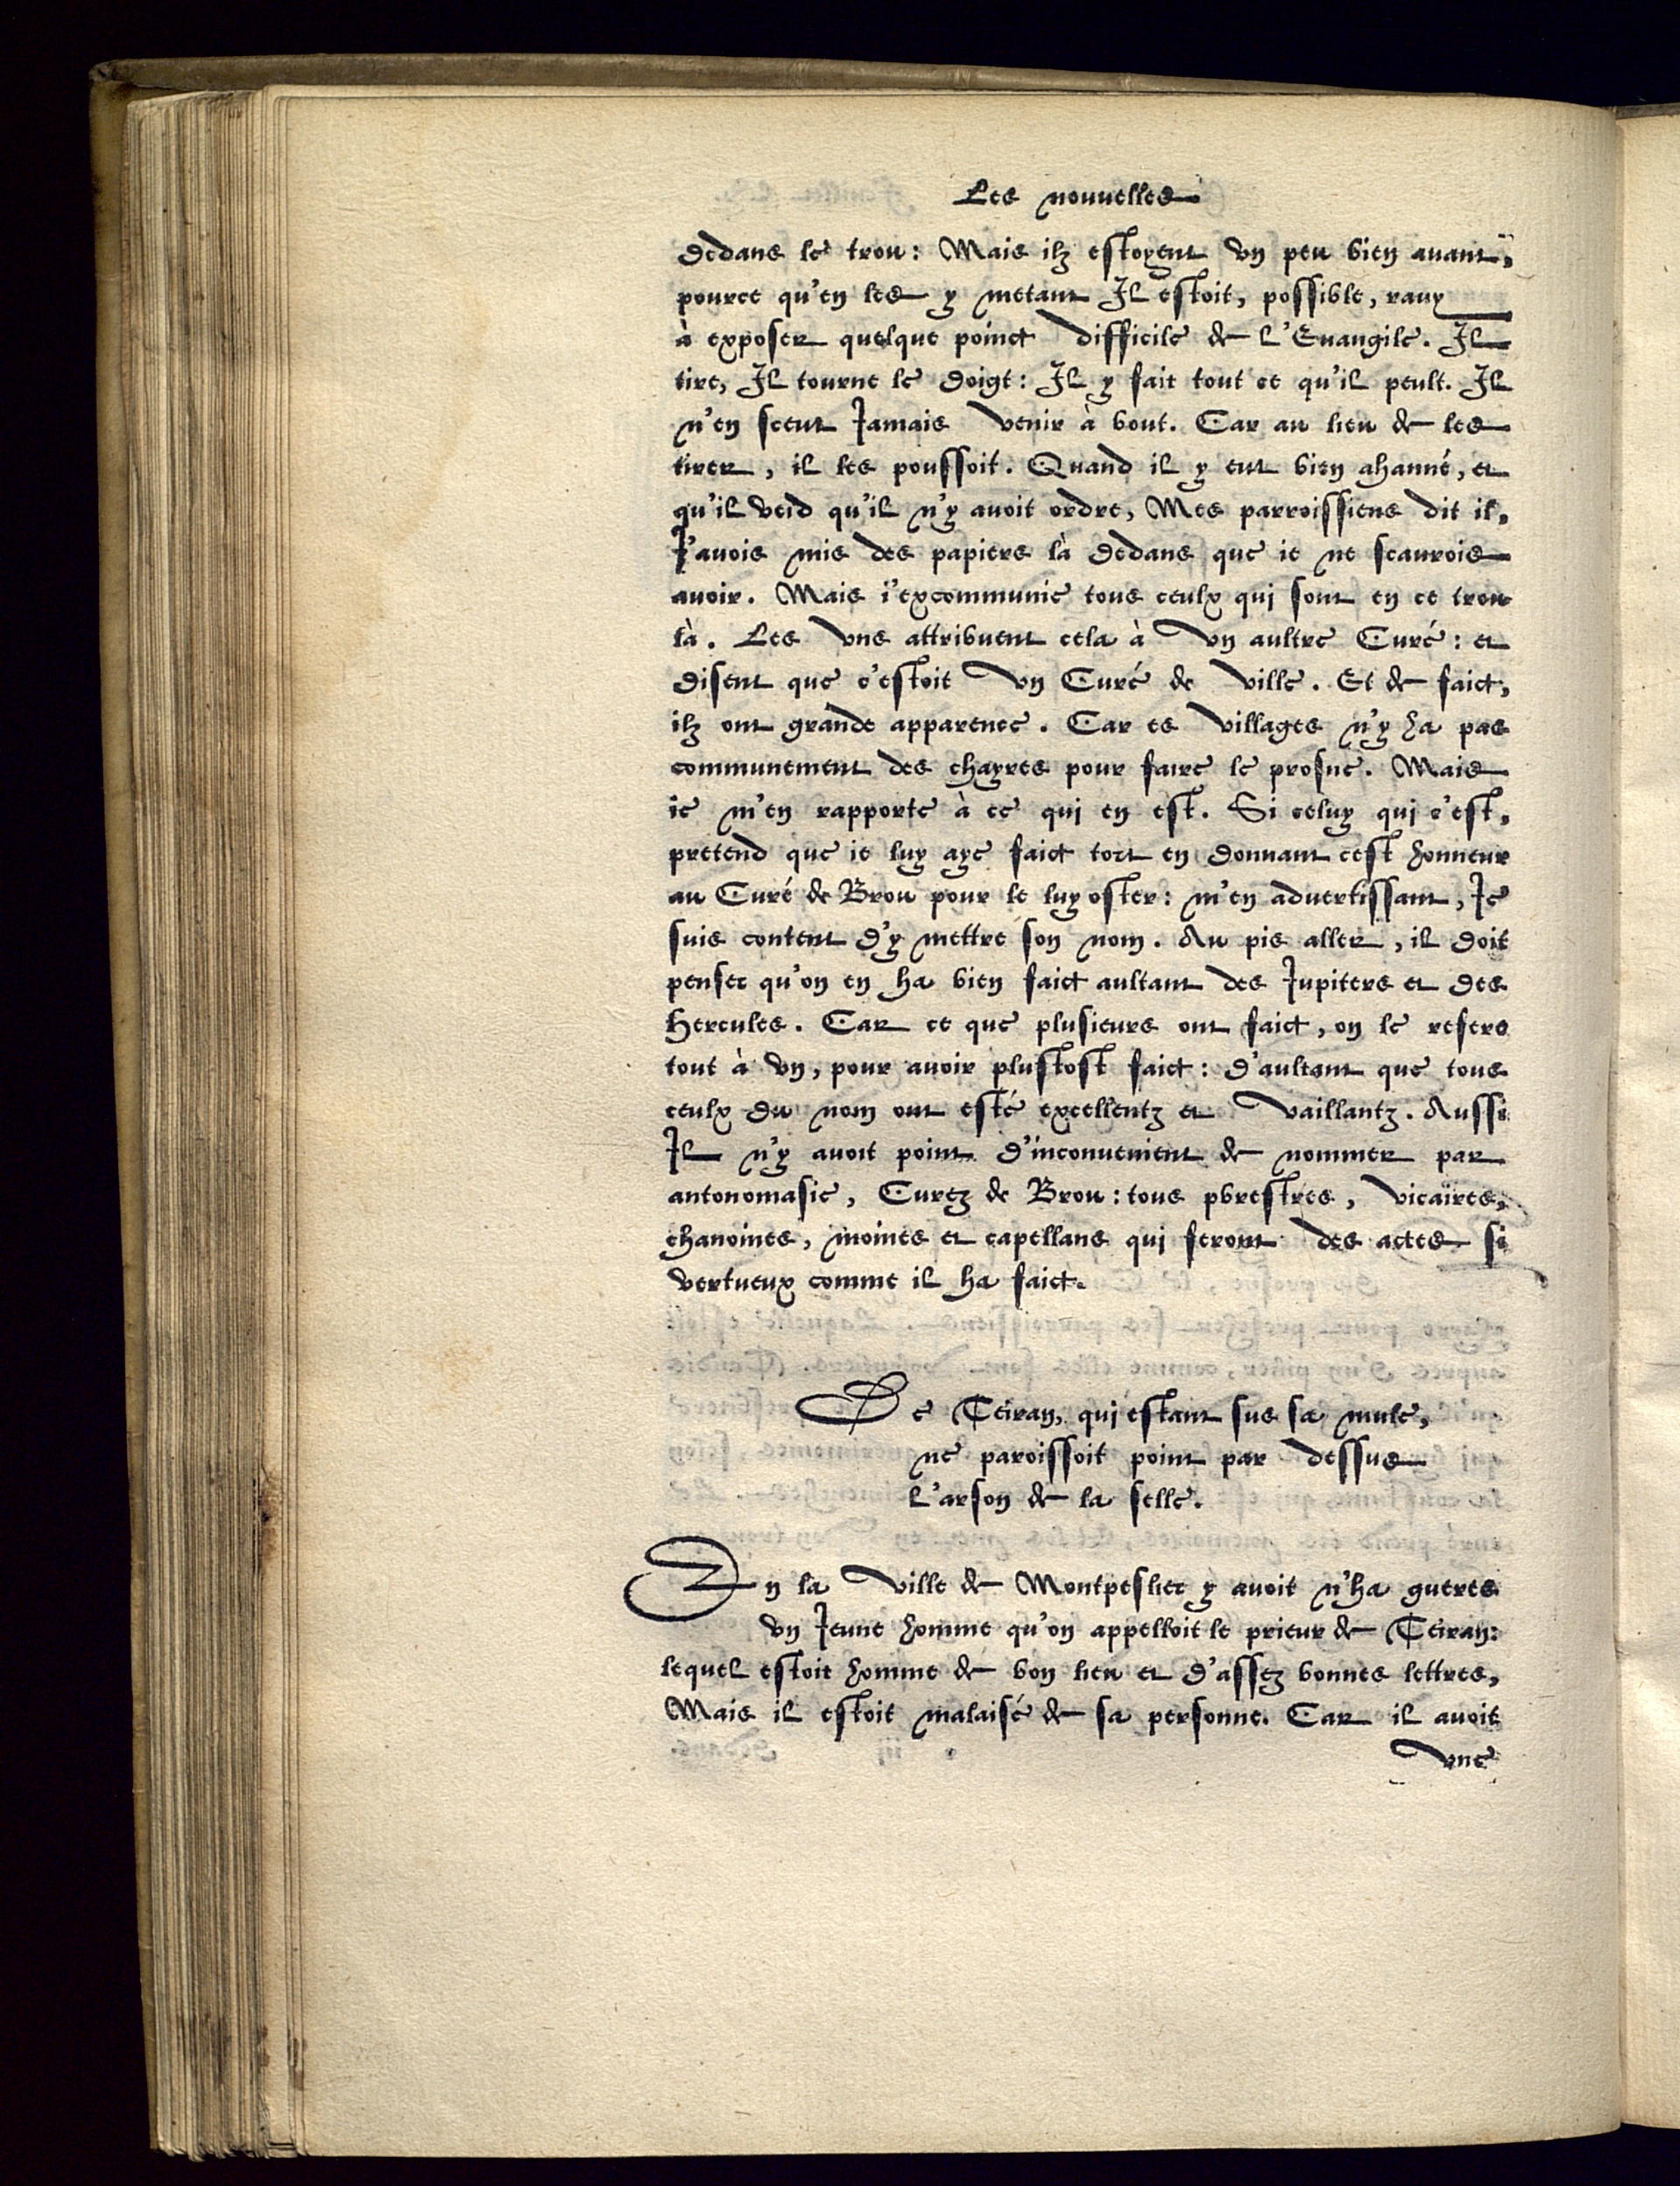 Les nouuelles
dedans le trou: Mais ilz estoyent vn peu bien auant,
pource qu'en les y metant Il estoit, possible, rauy
à exposer quelque poinct difficile de l'Euangile. Il
tire, Il tourne le doigt: Il y fait tout ce qu'il peult. Il
n'en sceut Iamais venir à bout. Car au lieu de les
tirer, il les poussoit. Quand il y eut bien ahanné, et
qu'il veid qu'il n'y auoit ordre, Mes parroissiens dit il,
I'auois mis des papiers là dedans que ie ne scaurois
auoir. Mais i'excommunie tous ceulx qui sont en ce trou
là. Les vns attribuent cela à vn aultre Curé: et
disent que c'estoit vn Curé de ville. Et de faict,
ilz ont grande apparence. Car es villages n'y ha pas
communement des chayres pour faire le prosne. Mais
ie m'en rapporte à ce qui en est. Si celuy qui c'est,
pretend que ie luy aye faict tort en donnant cest honneur
au Curé de Brou pour le luy oster: m'en aduertissant, Ie
suis content d'y mettre son nom. Au pis aller, il doit
penser qu'on en ha bien faict aultant des Iupiters et des
Hercules. Car ce que plusieurs ont faict, on le refere
tout à vn, pour auoir plustost faict: d'aultant que tous
ceulx du nom ont esté excellentz et vaillantz. Aussi
Il n'y auoit point d'inconuenient de nommer par
antonomasie, Curez de Brou: tous pbrestres, vicaires,
chanoines, moines et capellans qui feront des actes si
vertueux comme il ha faict.
De Teiran, qui estant sus sa mule,
ne paroissoit point par dessus
l'arson de la selle.
En la ville de Montpeslier y auoit n'ha gueres
vn Ieune homme qu'on appelloit le prieur de Teiran:
lequel estoit homme de bon lieu et d'assez bonnes lettres,
Mais il estoit malaisé de sa personne. Car il auoit
vne